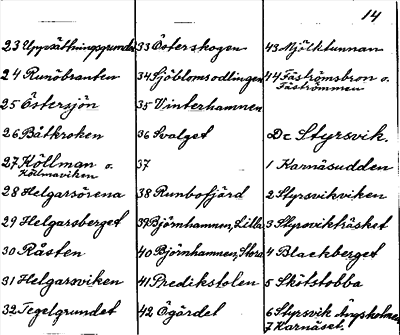 14
23 Uppvättningsgrundet
24 Runöbranten
25 Östersjön
26 Båtkroken
27 Köllman o.
Köllmaviken
28 Helgarsörena
29 Helgarsberget
30 Råsten
31 Helgarsviken
32 Tegelgrundet
33 Österskogen
34 Sjöblomsodlingen
35 Vinterhamnen
36 Svalget
37
38 Runbofjärd
39 Björnhamnen, Lilla
40 Björnhamnen, Stora
41 Predikstolen
42 Ögärdet
43 Mjölktunnan
44 Fäströmsbron o.
Fäströmmen
Dc Styrsvik.
1 Karnäsudden
2 Styrsvikviken
3 Styrsvikträsket
4 Blackberget
5 Skötstobba
6 Styrsvik
7 Karnäset.